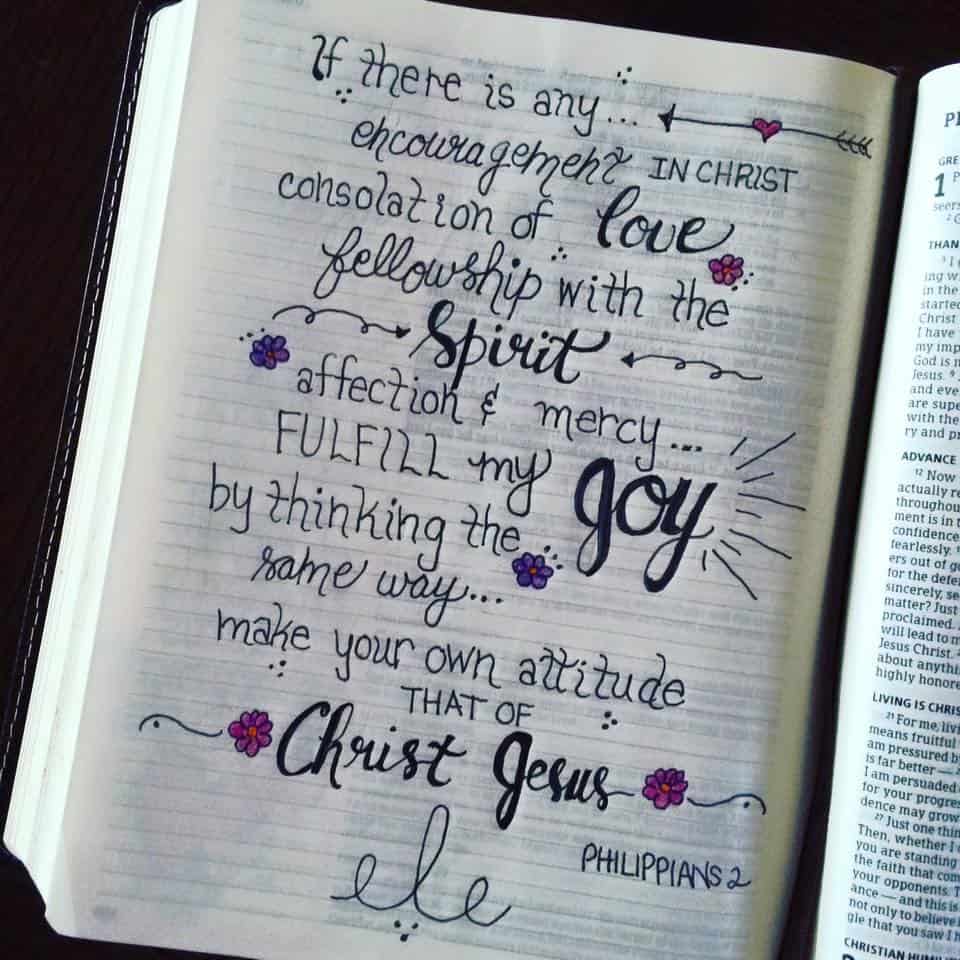 If there is any...
encouragement IN CHRIST
consolation of love
fellowship with the
Spirit
affection & mercy...
FULFILL my joy
by thinking the
same way...
make your own attitude
THAT OF
Christ Jesus
PHILIPPIANS 2
ele
1
THAN
ing w
in the
started
Christ
I have
my imp
God is
Jesus.
and eve
are supe
with the
ry and pr
ADVANCE
12 Now
actually re
throughou
ment is in t
confidence
fearlessly.
ers out of
for the defe
sincerely, se
matter? Just
proclaimed.
will lead to m
Jesus Christ.
about anythi
highly honore
LIVING IS CHRIS
21 For me, livi
means fruitful
am pressured b
is far better —
I am persuaded
for your progres
dence may grow
27 Just one thin
Then, whether I
you are standing
the faith that com
your opponents. T
ance — and this is
not only to believe
gle that you saw I h
CHRISTIAN HUMILI